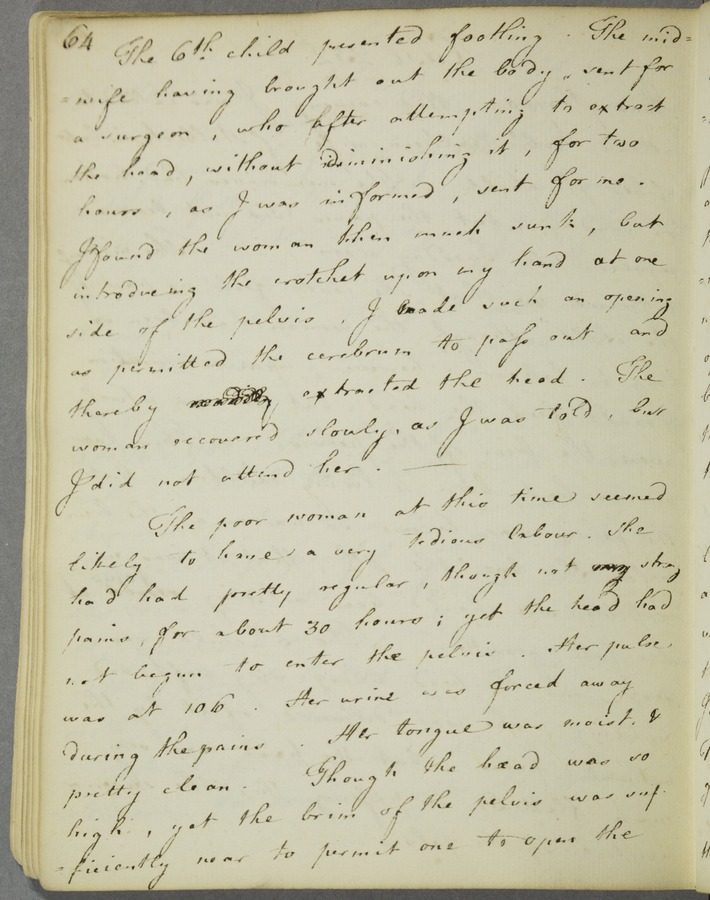 64
The 6th child presented footling. The mid=
=wife having brought out the body, sent for
a surgeon, who after attempting to extract
the head, without diminishing it, for two
hours, as I was informed, sent for me.
I found the woman then much sunk, but
introducing the crotchet upon my hand at one
side of the pelvis, I made such an opening
as permitted the cerebrum to pass out and
thereby extracted the head. The
woman recovered slowly, as I was told, but
I did not attend her. —
The poor woman at this time seemed
likely to have a very tedious labour. She
had had pretty regular, though not strong
pains, for about 30 hours; yet the head had
not begun to enter the pelvis. Her pulse,
was at 106. Her urine was forced away
during the pains. Her tongue was moist, &
pretty clean. Though the head was so
high, yet the brim of the pelvis was suf-
=ficiently near to permit one to open the